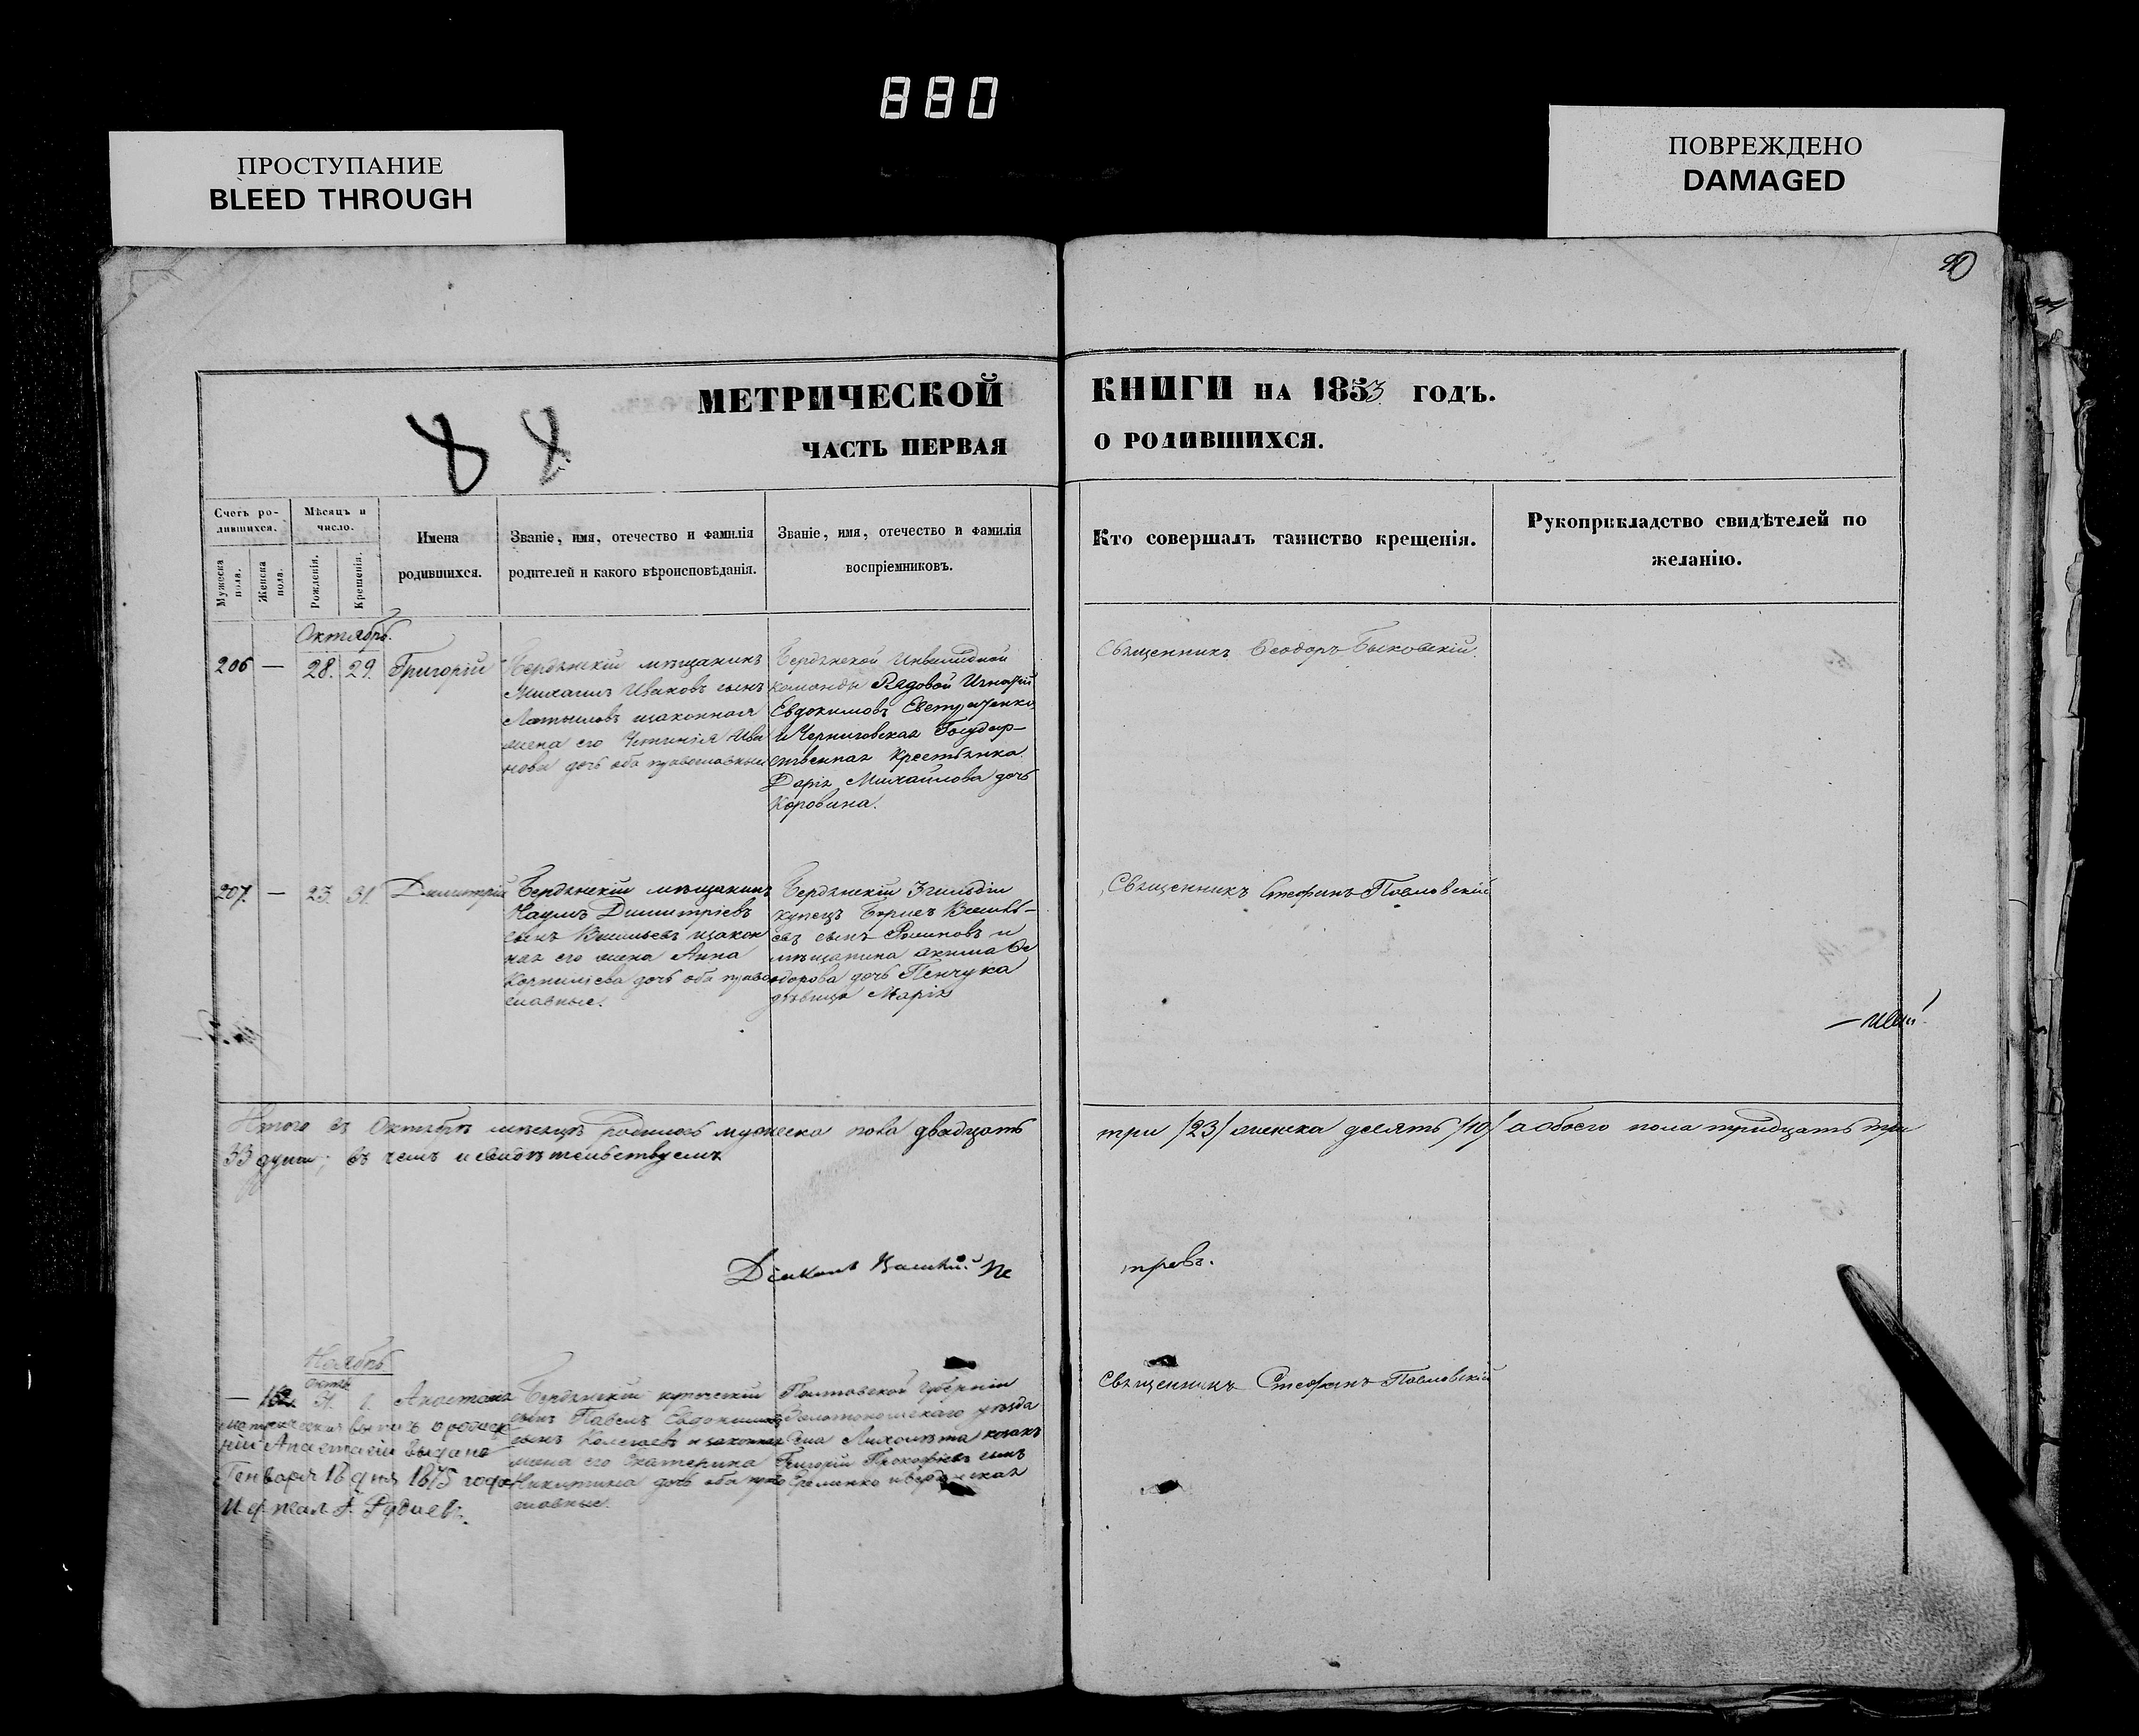 880
ПРОСТУПАНИЕ
BLEED THROUGH
ПОВРЕЖДЕНО
DAMAGED
МЕТРИЧЕСКОЙ КНИГИ НА 1853 ГОДЪ.
ЧАСТЬ ПЕРВАЯ О РОДИВШИХСЯ.
Счетъ ро-
дившихся.
Мужеска пола.
Женска пола.
Мѣсяцъ и
число.
Рожденія.
Крещенія.
Имена
родившихся.
Званіе, имя, отечество и фамилія
родителей и какого вѣроисповѣданія.
Званіе, имя, отечество и фамилія
воспріемниковъ.
Кто совершалъ таинство крещенія.
Рукоприкладство свидѣтелей по
желанію.
Октябрь.
206 — 28. 29. Григорій
Бердянскій мѣщанинъ
Михаилъ Ивановъ сынъ
законная
жена его Ива
нова дочь оба православные
Бердянской Инвалидной
команды Рядовой Игнатій
Евдокимовъ Евстратенко
и Черниговская Государ-
ственная крестьянка
Дарія Михаилова дочь
Коровина.
Священникъ Ѳеодоръ Быковскій.
207. — 23. 31. Димитрій
Бердянскій мѣщанинъ
Наумъ Димитріевъ
сынъ Васильевъ и закон
ная его жена Анна
Корниліева дочь оба право
славные.
Бердянскій 3 гильдіи
купецъ Борисъ Василь-
евъ сынъ и
мѣщанина Ѳе
одорова дочь Пенчука
дѣвица Марія
Священникъ Стефанъ Павловскій
Итого въ Октябрѣ мѣсяцѣ родилось мужеска пола двадцать три /23/ женска десять /10/ а обоего пола тридцать три
33 души; въ чемъ и свидѣтельствуемъ
Діаконъ Василій Пе тровъ.
Ноябрь
октяб
— 31. 1. Анастасія
Бердянскій греческій
сынъ Павелъ Евдокимовъ
сынъ и законная
жена его Екатерина
Никитина дочь оба право
славные.
Полтавской Губерніи
Золотоношскаго уѣзда
козакъ
Григорій Прокофіевъ сынъ
Еременко и Бердянская
Священникъ Стефанъ Павловскій
метрическая выпись о рожде
ніи Анастасіи выдана
Генваря 18 дня 1875 года